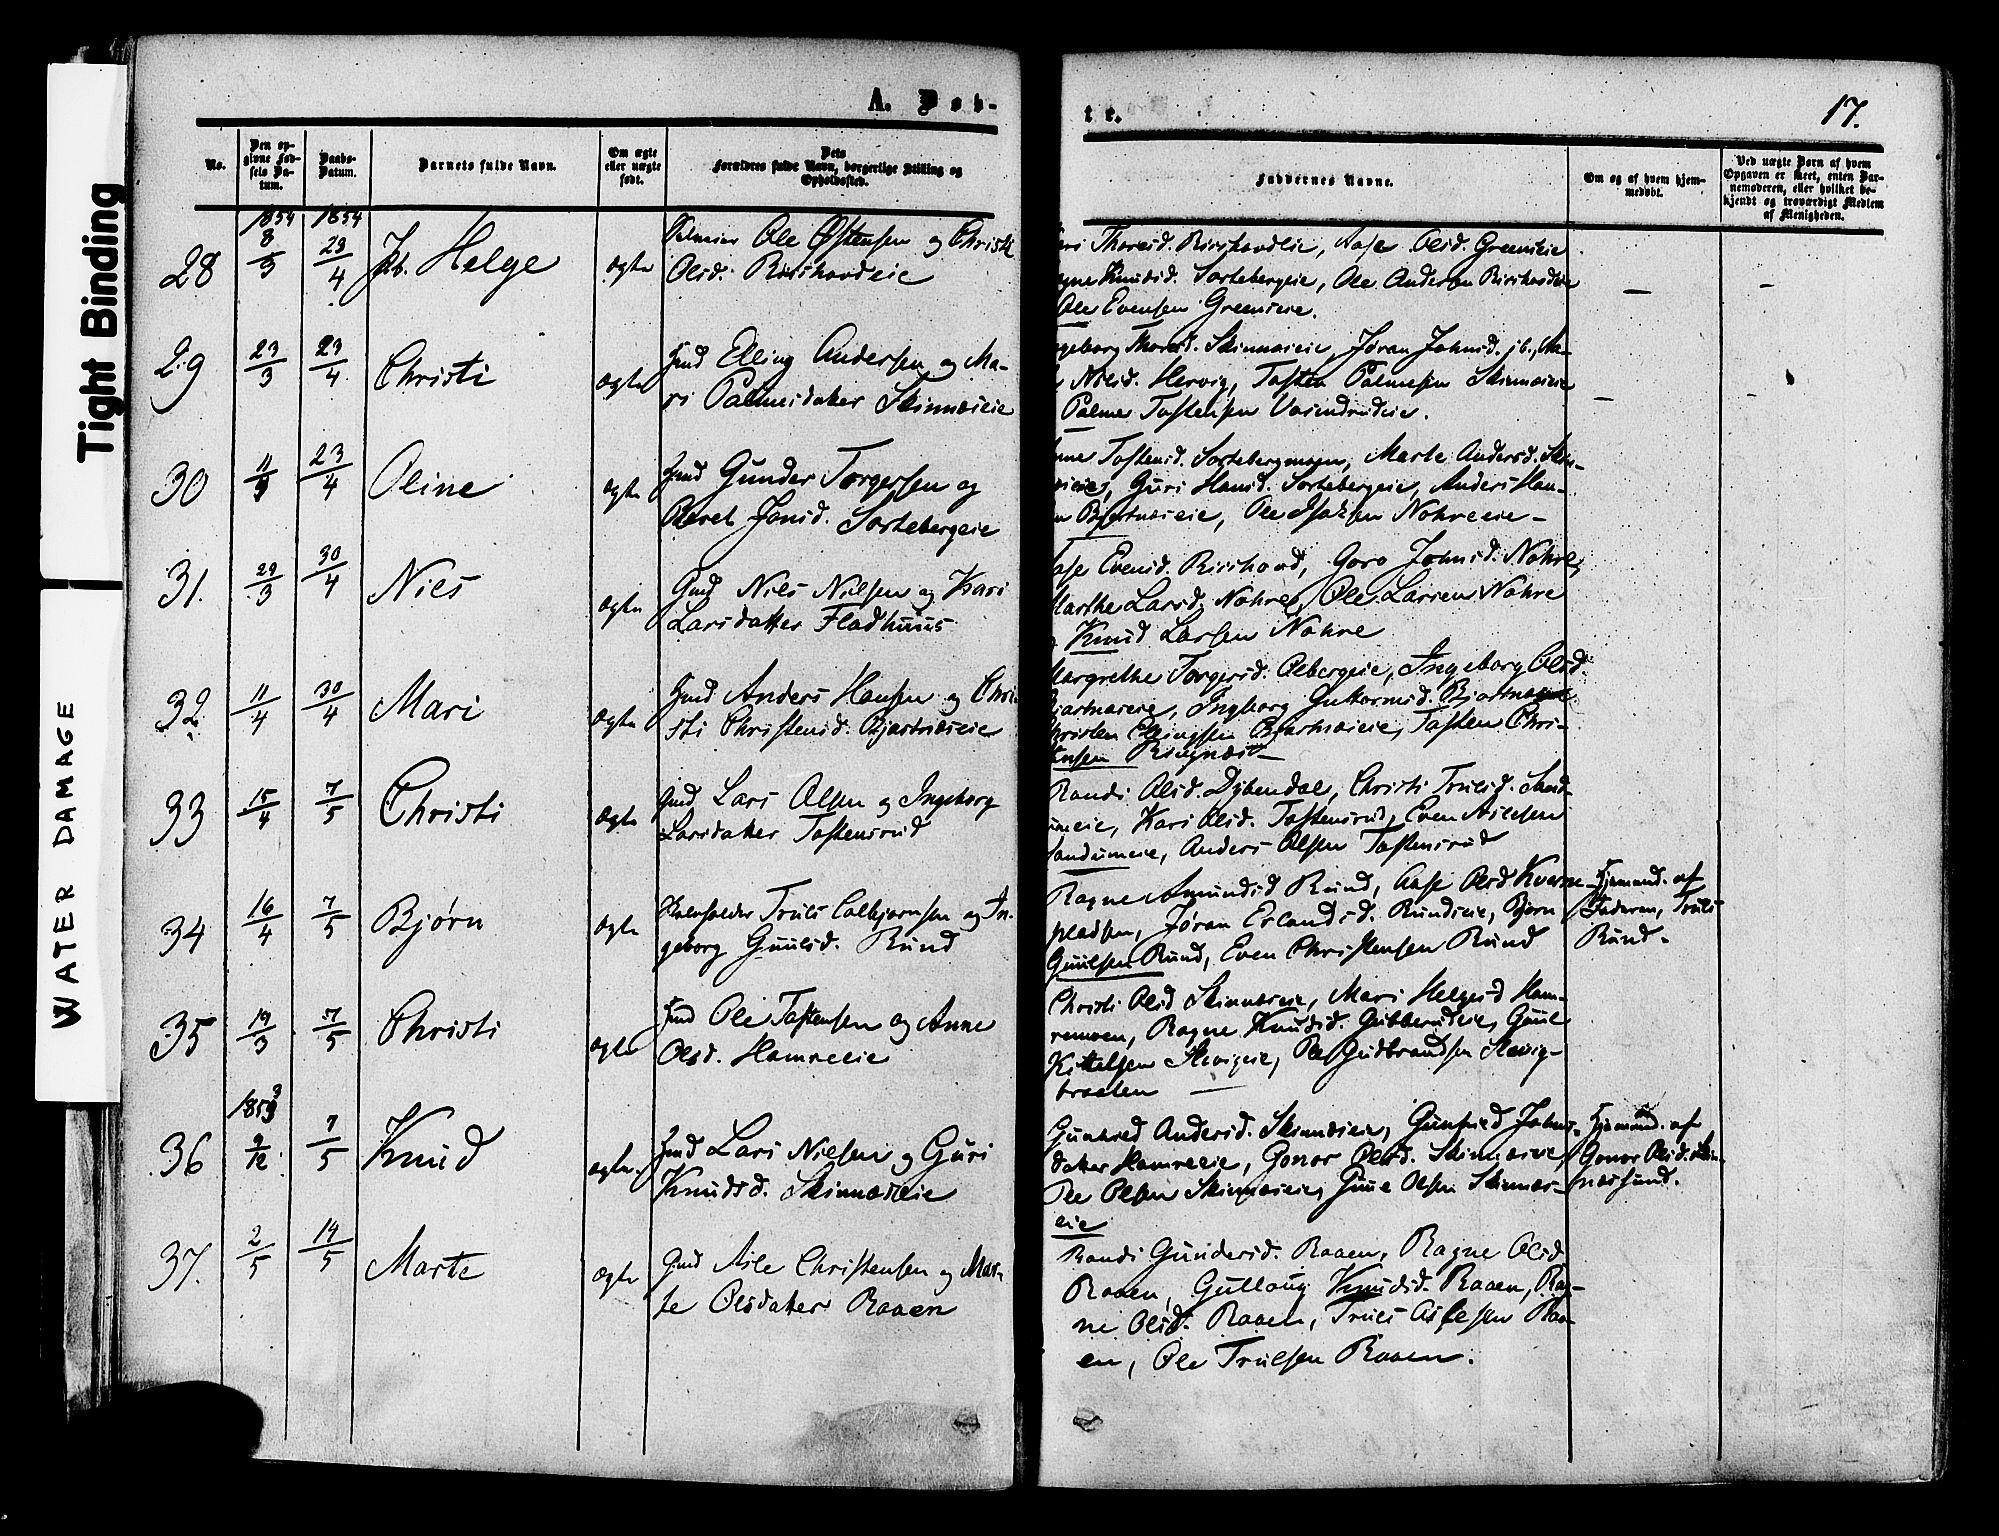 Tight Binding
WATER DAMAGE
A. Døb-
te.
17.
No.
Den op-
givne Fød-
sels Da-
tum.
Daabs-
Datum.
Barnets fulde Navn.
Om ægte
eller uægte
født.
Dets
Forældres fulde Navn, borgerlige Stilling og
Opholdssted.
Faddernes Navne.
Om og af hvem hjem-
medøbt.
Ved uægte Børn af hvem
Opgaven er skeet, enten Bar-
nemoderen, eller hvilket be-
kjendt og troværdigt Medlem
af Menigheden.
1854 1854
28 8/3 23/4 Helge ægte
Ole Østensen og Christi
Olsd.
Thoresd. Aase Olsd. Greeneie
Knudsd. Sortebergeie, Ole Andersen
Ole Evensen Greeneie.
— —
29 23/3 23/4 Christi ægte
Elling Andersen og Ma-
ri Palmesdatter Skinnæseie
Thoresd. Skinnæseie, Jøran Johnsd. ib., Ma-
Nilsd. Hervig, Tosten Palmesen Skinnæseie
Palme Tostensen
—
30 11/3 23/4 Oline ægte
Gunder Torgersen og
Jonsd. Sortebergeie
Tostensd. Marte Andersd. Skin-
Guri Hansd. Sortebergeie, Anders Han-
Bjertnæseie, Ole Nohreeie –
31. 29/3 30/4 Niels ægte
Gmd Nils Nilsen og Kari
Larsdatter Fladhuus
Aase Evensd. Goro Johnsd. Nohre,
Marthe Larsd. Nohre, Ole Larsen Nohre
Knud Larsen Nohre
32 11/4 30/4 Mari ægte
Anders Hansen og Chri-
sti Christensd. Bjertnæseie
Margrethe Torgersd. Ingeborg Olsd.
Ingborg Guttormsd.
Christen Ellingsen Tosten Chri-
stensen Ringnæs–
33 15/4 7/5 Christi ægte
Gmd Lars Olsen og Ingeborg
Larsdatter Tostensrud
Randi Olsd. Dybendal, Christi Trulsd. Sand-
umeie, Kari Olsd. Tostensrud, Even
Sandumeie, Anders Olsen Tostensrud
34 16/4 7/5 Bjørn ægte
Truls Colbjørnsen og In-
geborg Guulsd. Rund
Ragne Amundsd Rund, Aase Olsd Kverne-
pladsen, Jøran Erlandsd. Rundseie, Bjørn
Guulsen Rund, Even Christensen Rund
Hjemmed. af
Faderen, Truls
Rund.
35 19/3 7/5 Christi ægte
Ole Tostensen og Anne
Olsd. Hamreeie
Christi Olsd Skinnæseie, Mari Helgesd Ham-
remoen, Ragne Knudsd. Gubberudeie, Guul
Kittelsen Ole Gudbrandsen
braaten —
1853
36 9/12 7/5 Knud ægte
Lars Nielsen og Guri
Knudsd. Skinnæseie
Andersd. Skinnæseie, Johns-
datter Hamreeie, Gonor Olsd. Skinnæseie
Ole Olsen Skinnæseie, Olsen Skinnæs-
eie
Hjemmed. af
Gonor Olsd. Skin-
37. 2/5 14/5 Marte ægte
Gmd Asle Christensen og Mar-
te Olsdatter Raaen
Randi Gundersd. Raaen, Ragne Olsd
Raaen, Gullaug Knudsd. Raaen, Rag-
ne Olsd. Raaen, Truls Aslesen Raa-
en, Ole Trulsen Raaen.